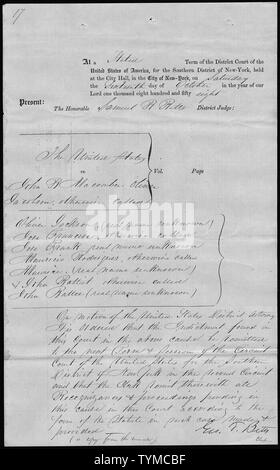 17
At a Stated Term of the District Court of the
United States of America, for the Southern District of New-York, held
at the City Hall, in the City of New-York, on Saturday
the Sixteenth day of October in the year of our
Lord one thousand eight hundred and fifty eight
Present:
The Honorable Samuel R Betts District Judge:
The United States
vs
Vol. Page
John P. Macomber, Oliver
otherwise called
Oliver Jackson (real name unknown)
Jose Francisco, otherwise called
Jose Frank real name unknown
Mauricio Rodriguez, otherwise called
Maurice (real name unknown)
& John Battist otherwise called
John Battee (real name unknown)
On motion of the United States District Attorney
It is Ordered that the Indictment found in
this Court in the above cause be remitted
to the next Term & session of the Circuit
Court of the United States for the Southern
District of New York in the second Circuit
and that the Clerk transmit therewith all
Recognizances & proceedings pending in
this cause in this Court according to the
form of the Statute in such case made &
provided
Geo. F. Betts
(a copy from the minutes)
Clerk
alamy
Image ID: TYMCBF
www.alamy.com